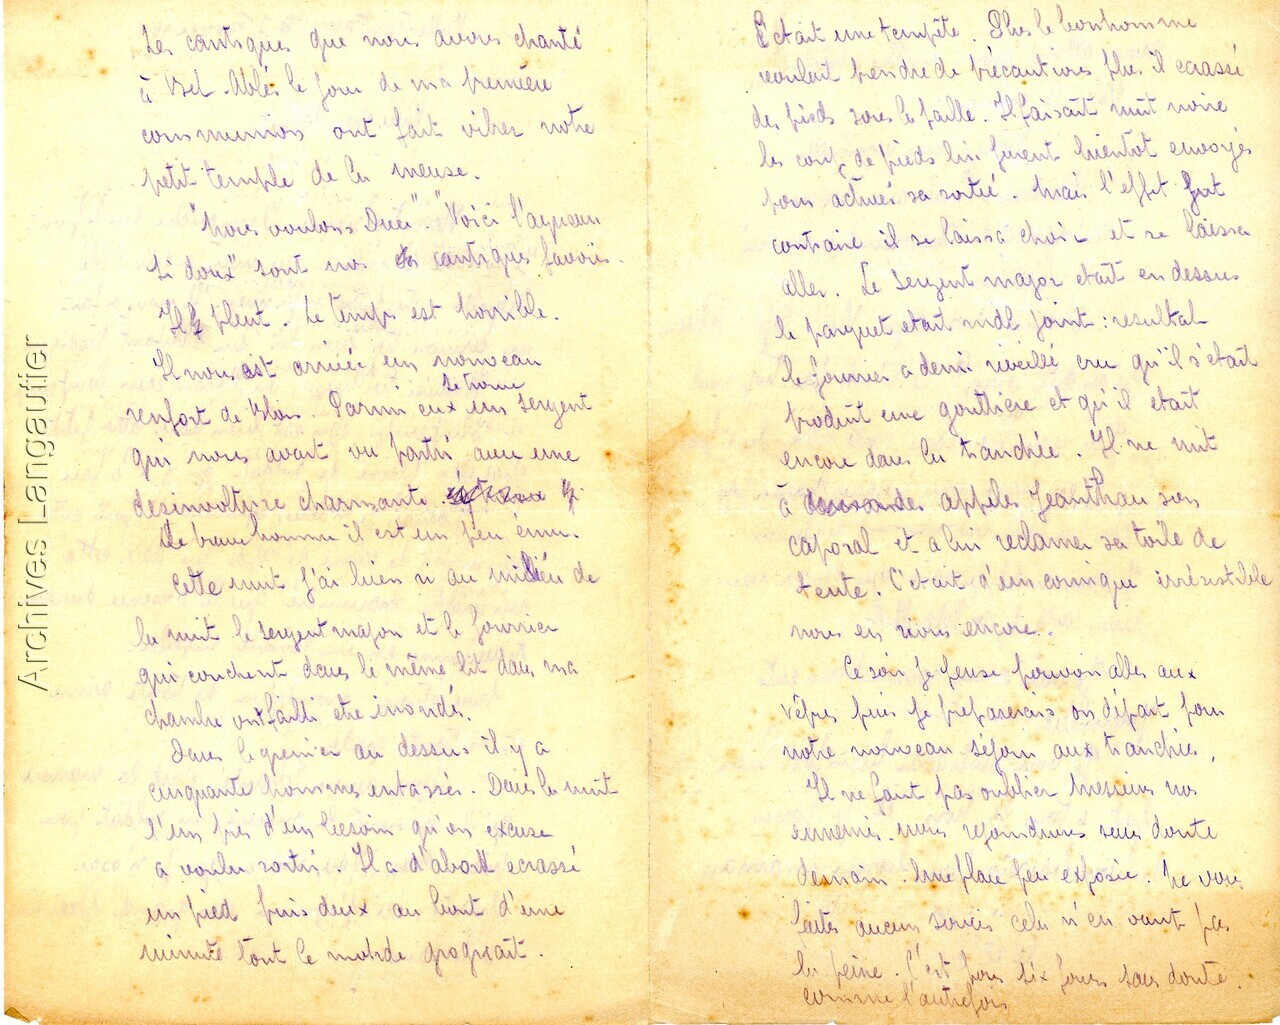 Les cantiques que nous avons chanté
à Bel. Ablés le jour de ma première
communion ont fait vibrer notre
petit temple de la meuse.
"Nous voulons Dieu". "Voici l'agneau
si doux" sont nos cantiques favoris.
Il pleut. Le temps est horrible.
Il nous est arrivée un nouveau
se trouve
renfort de Blois. Parmi eux un sergent
qui nous avait vu partir avec une
desinvolture charmante
Le brave homme il est un peu ému.
Cette nuit j'ai bien ri au milieu de
la nuit le sergent major et le fourrier
qui couchent dans le même lit dans ma
chambre ont failli etre inondés.
Dans le grenier au dessus il y a
cinquante hommes entassés. Dans la nuit
l'un pris d'un besoin qu'on excuse
a voulu sortir. Il a d'abord ecrassé
un pied puis deux au bout d'une
minute tout le monde grognait.
C'etait une tempête. Plus le bonhomme
voulait prendre de précautions plus il ecrassé
des pieds sous la paille. Il faisait nuit noire
les coups de pieds lui furent bientot envoyés
pour activer sa sortié. Mais l'effet fut
contraire il se laissa choir et se laissa
aller. Le Sergent major etait en dessous
le parquet etait mal joint : resultat
le fourrier a demi reveillé cru qu'il s'était
produit une gouttière et qu'il etait
encore dans la tranchée. Il se mit
à appeler son
caporal et a lui reclamer sa toile de
tente. C'etait d'un comique irrésistible
nous en rions encore.
Ce soir je pense pouvoir aller aux
vêpres puis je preparerais on départ pour
notre nouveau séjour aux tranchées.
Il ne faut pas oublier Messieurs nos
ennemis. nous rejoindrons sans doute
demain. Une place peu exposée. Ne vous
faites aucun soucis cela n'en vaut pas
la peine. C'est pour six jours sans doute.
comme l'autrefois
Archives Langautier